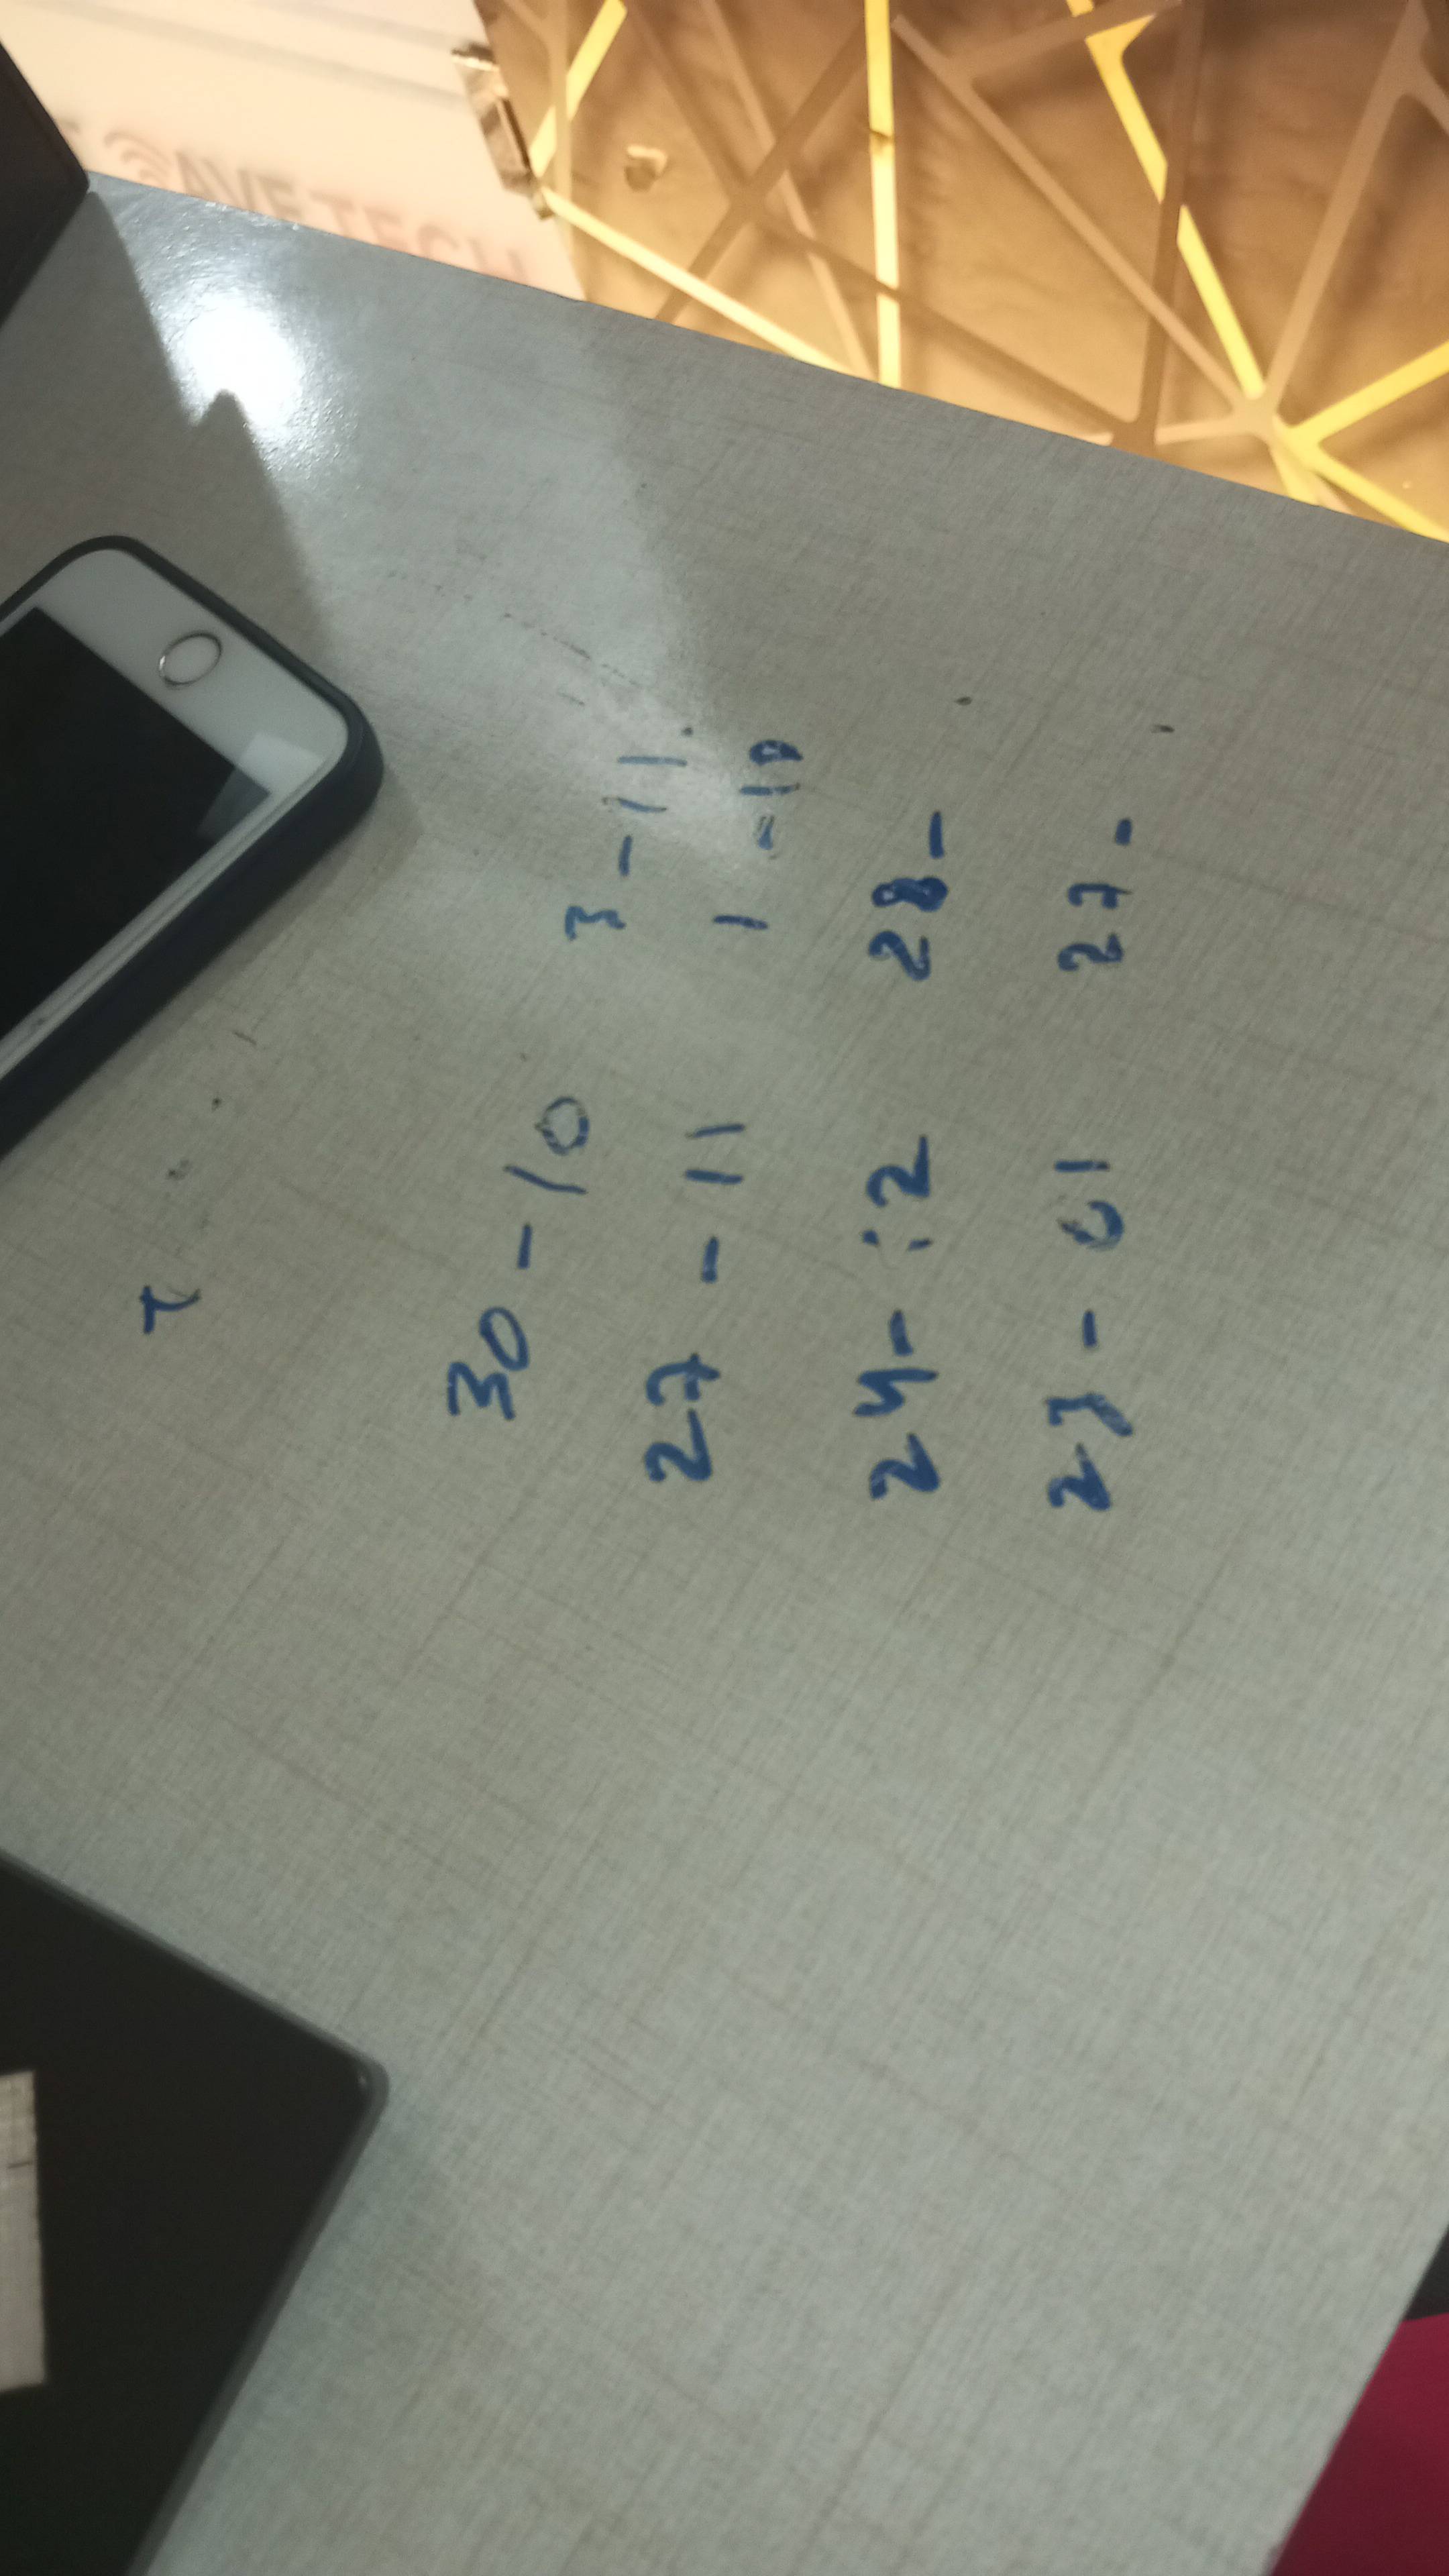 30 - 10
27 - 11
24 - 12
23 - 01
3 - 11
1 - 10
28 -
27 -